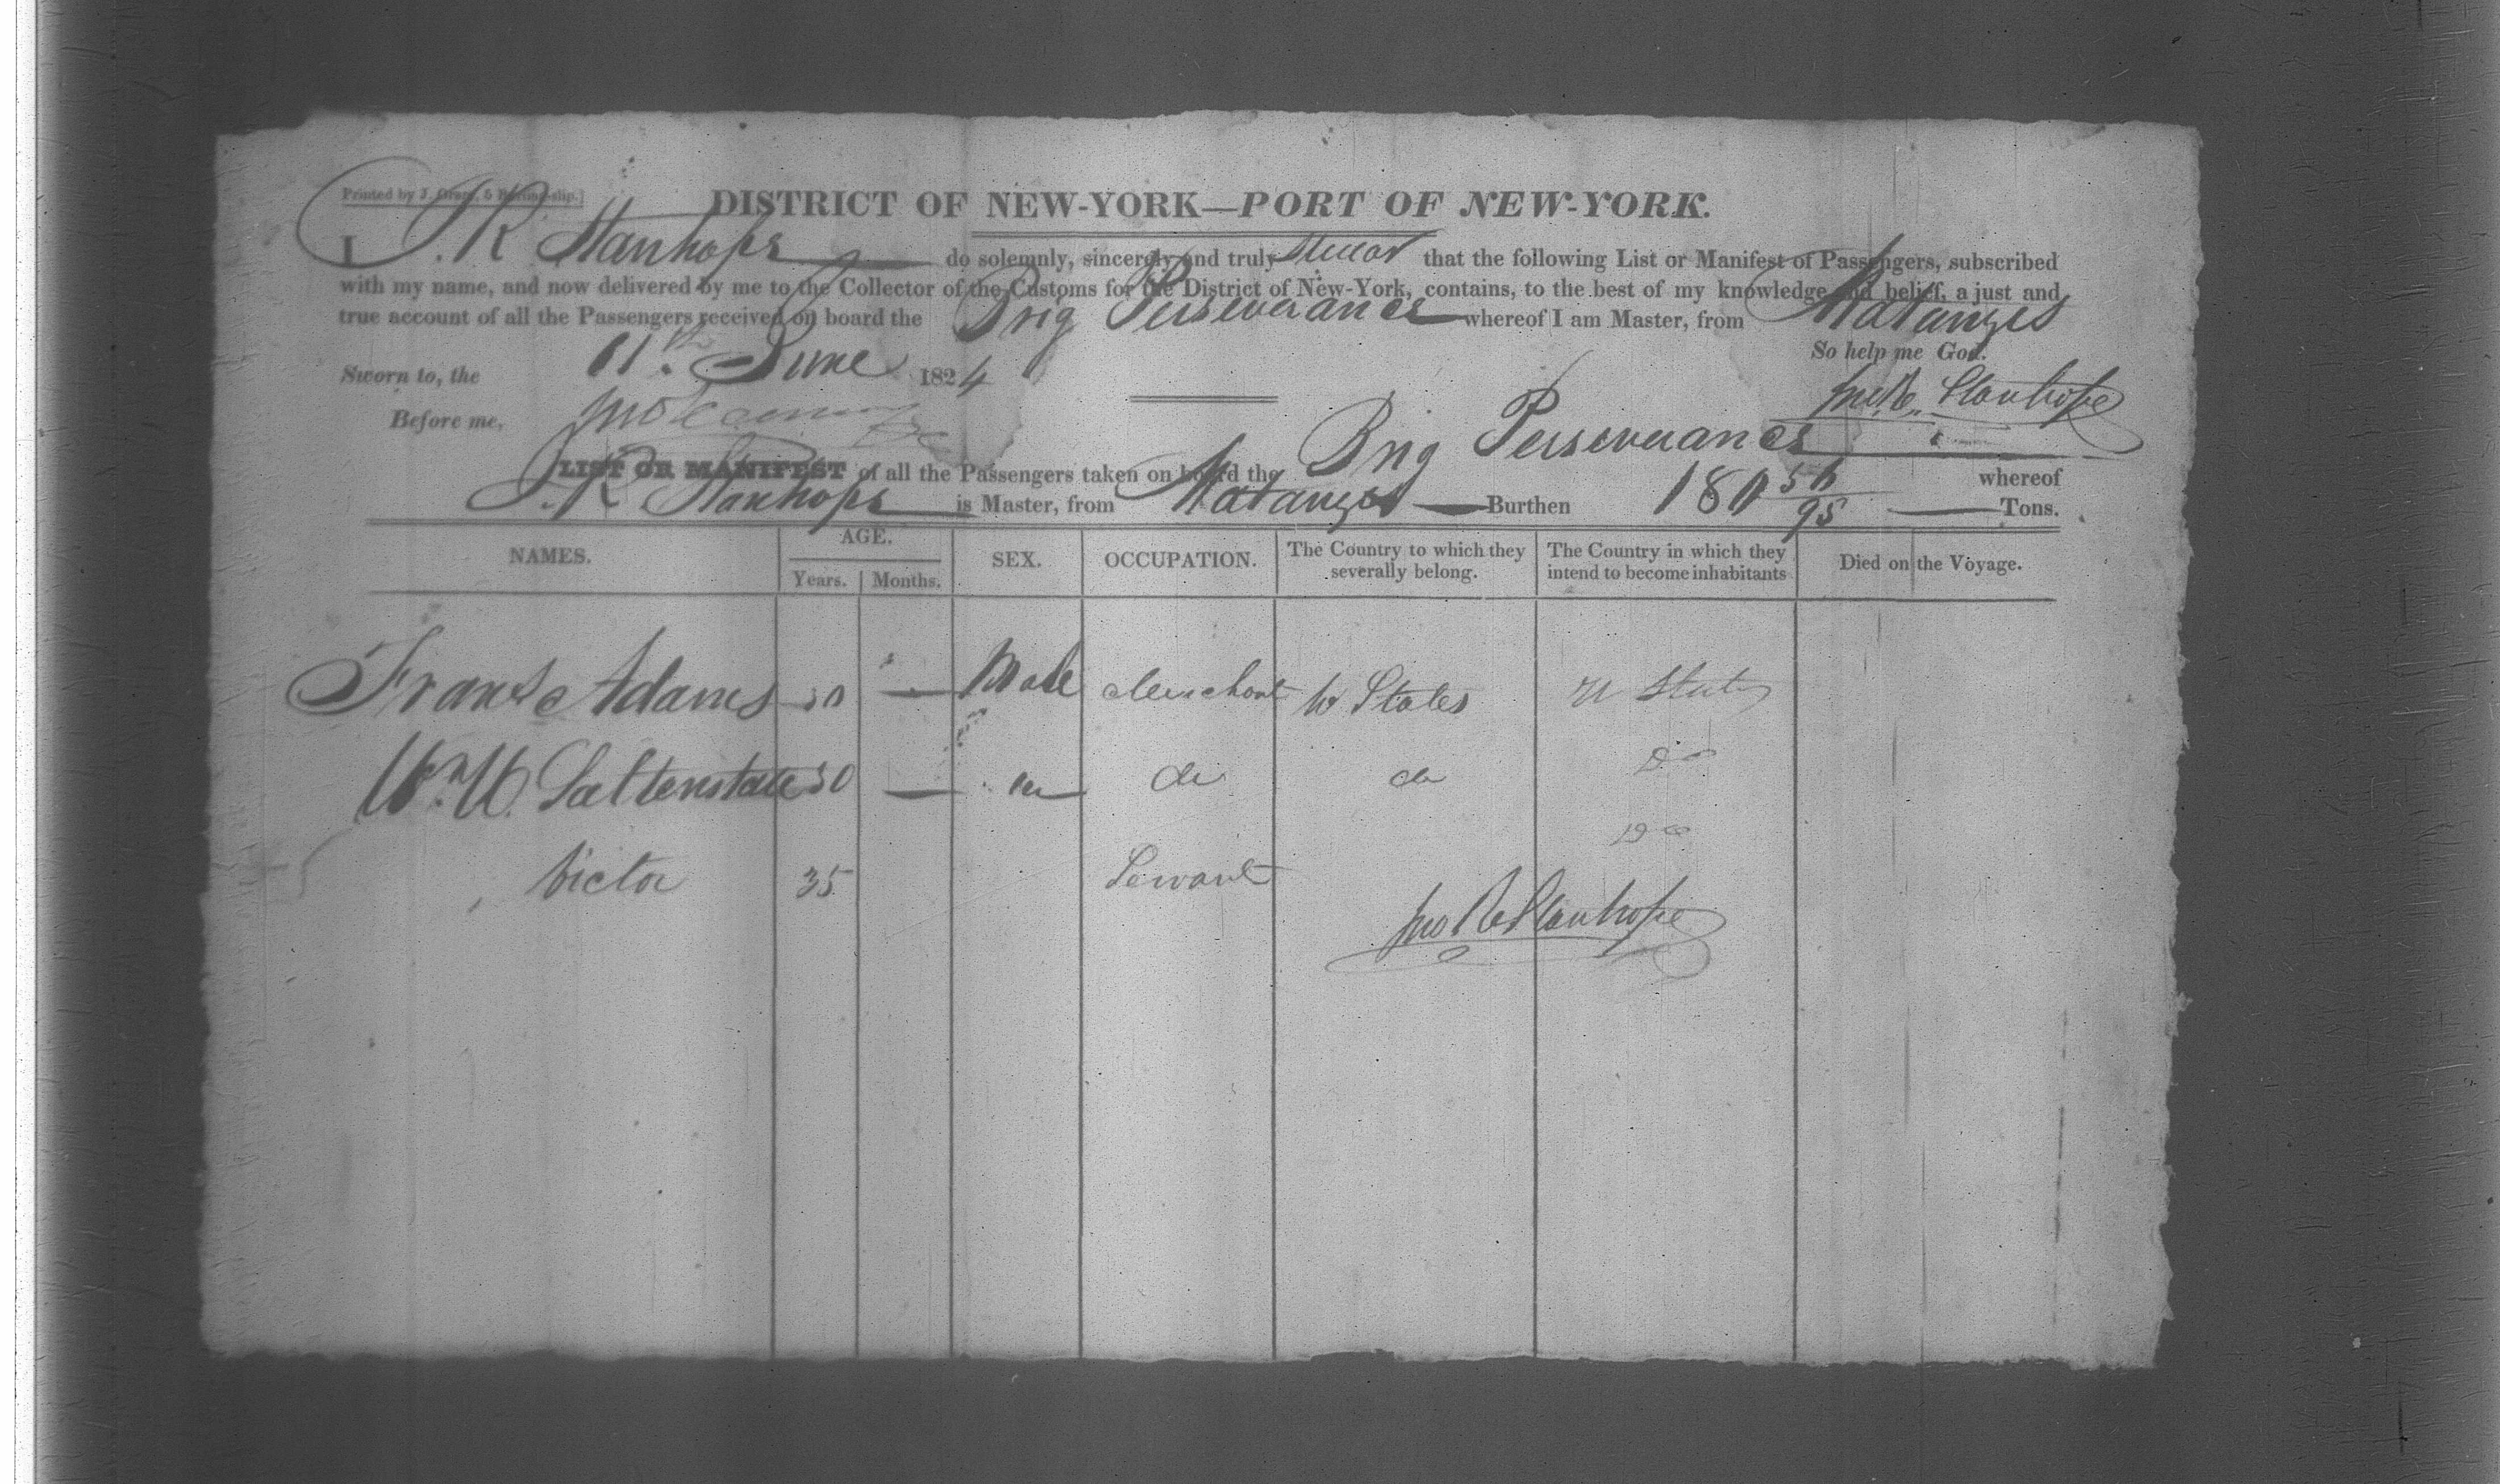 Printed by J. Gray, & Burling-slip.]
DISTRICT OF NEW-YORK—PORT OF NEW-YORK.
I J. R Stanhope do solemnly, sincerely and truly swear that the following List or Manifest of Passengers, subscribed
with my name, and now delivered by me to the Collector of the Customs for the District of New-York, contains, to the best of my knowledge and belief, a just and
true account of all the Passengers received on board the Brig Perseverance whereof I am Master, from Matanzes
So help me God.
Sworn to, the 11th. June 1824
Jno R Stanhope
Before me,
LIST OR MANIFEST of all the Passengers taken on board the Brig Perseverance whereof
J. R Stanhope is Master, from Matanzes Burthen 180 56/95 Tons.
NAMES. AGE. SEX. OCCUPATION. The Country to which they severally belong. The Country in which they intend to become inhabitants Died on the Voyage.
Years. Months.
Frans Adams 30 — Male Merchant U States U States
Wm. U. Saltenstale 30 — do do do Do
Victor 35 Servant Do
Jno R Stanhope